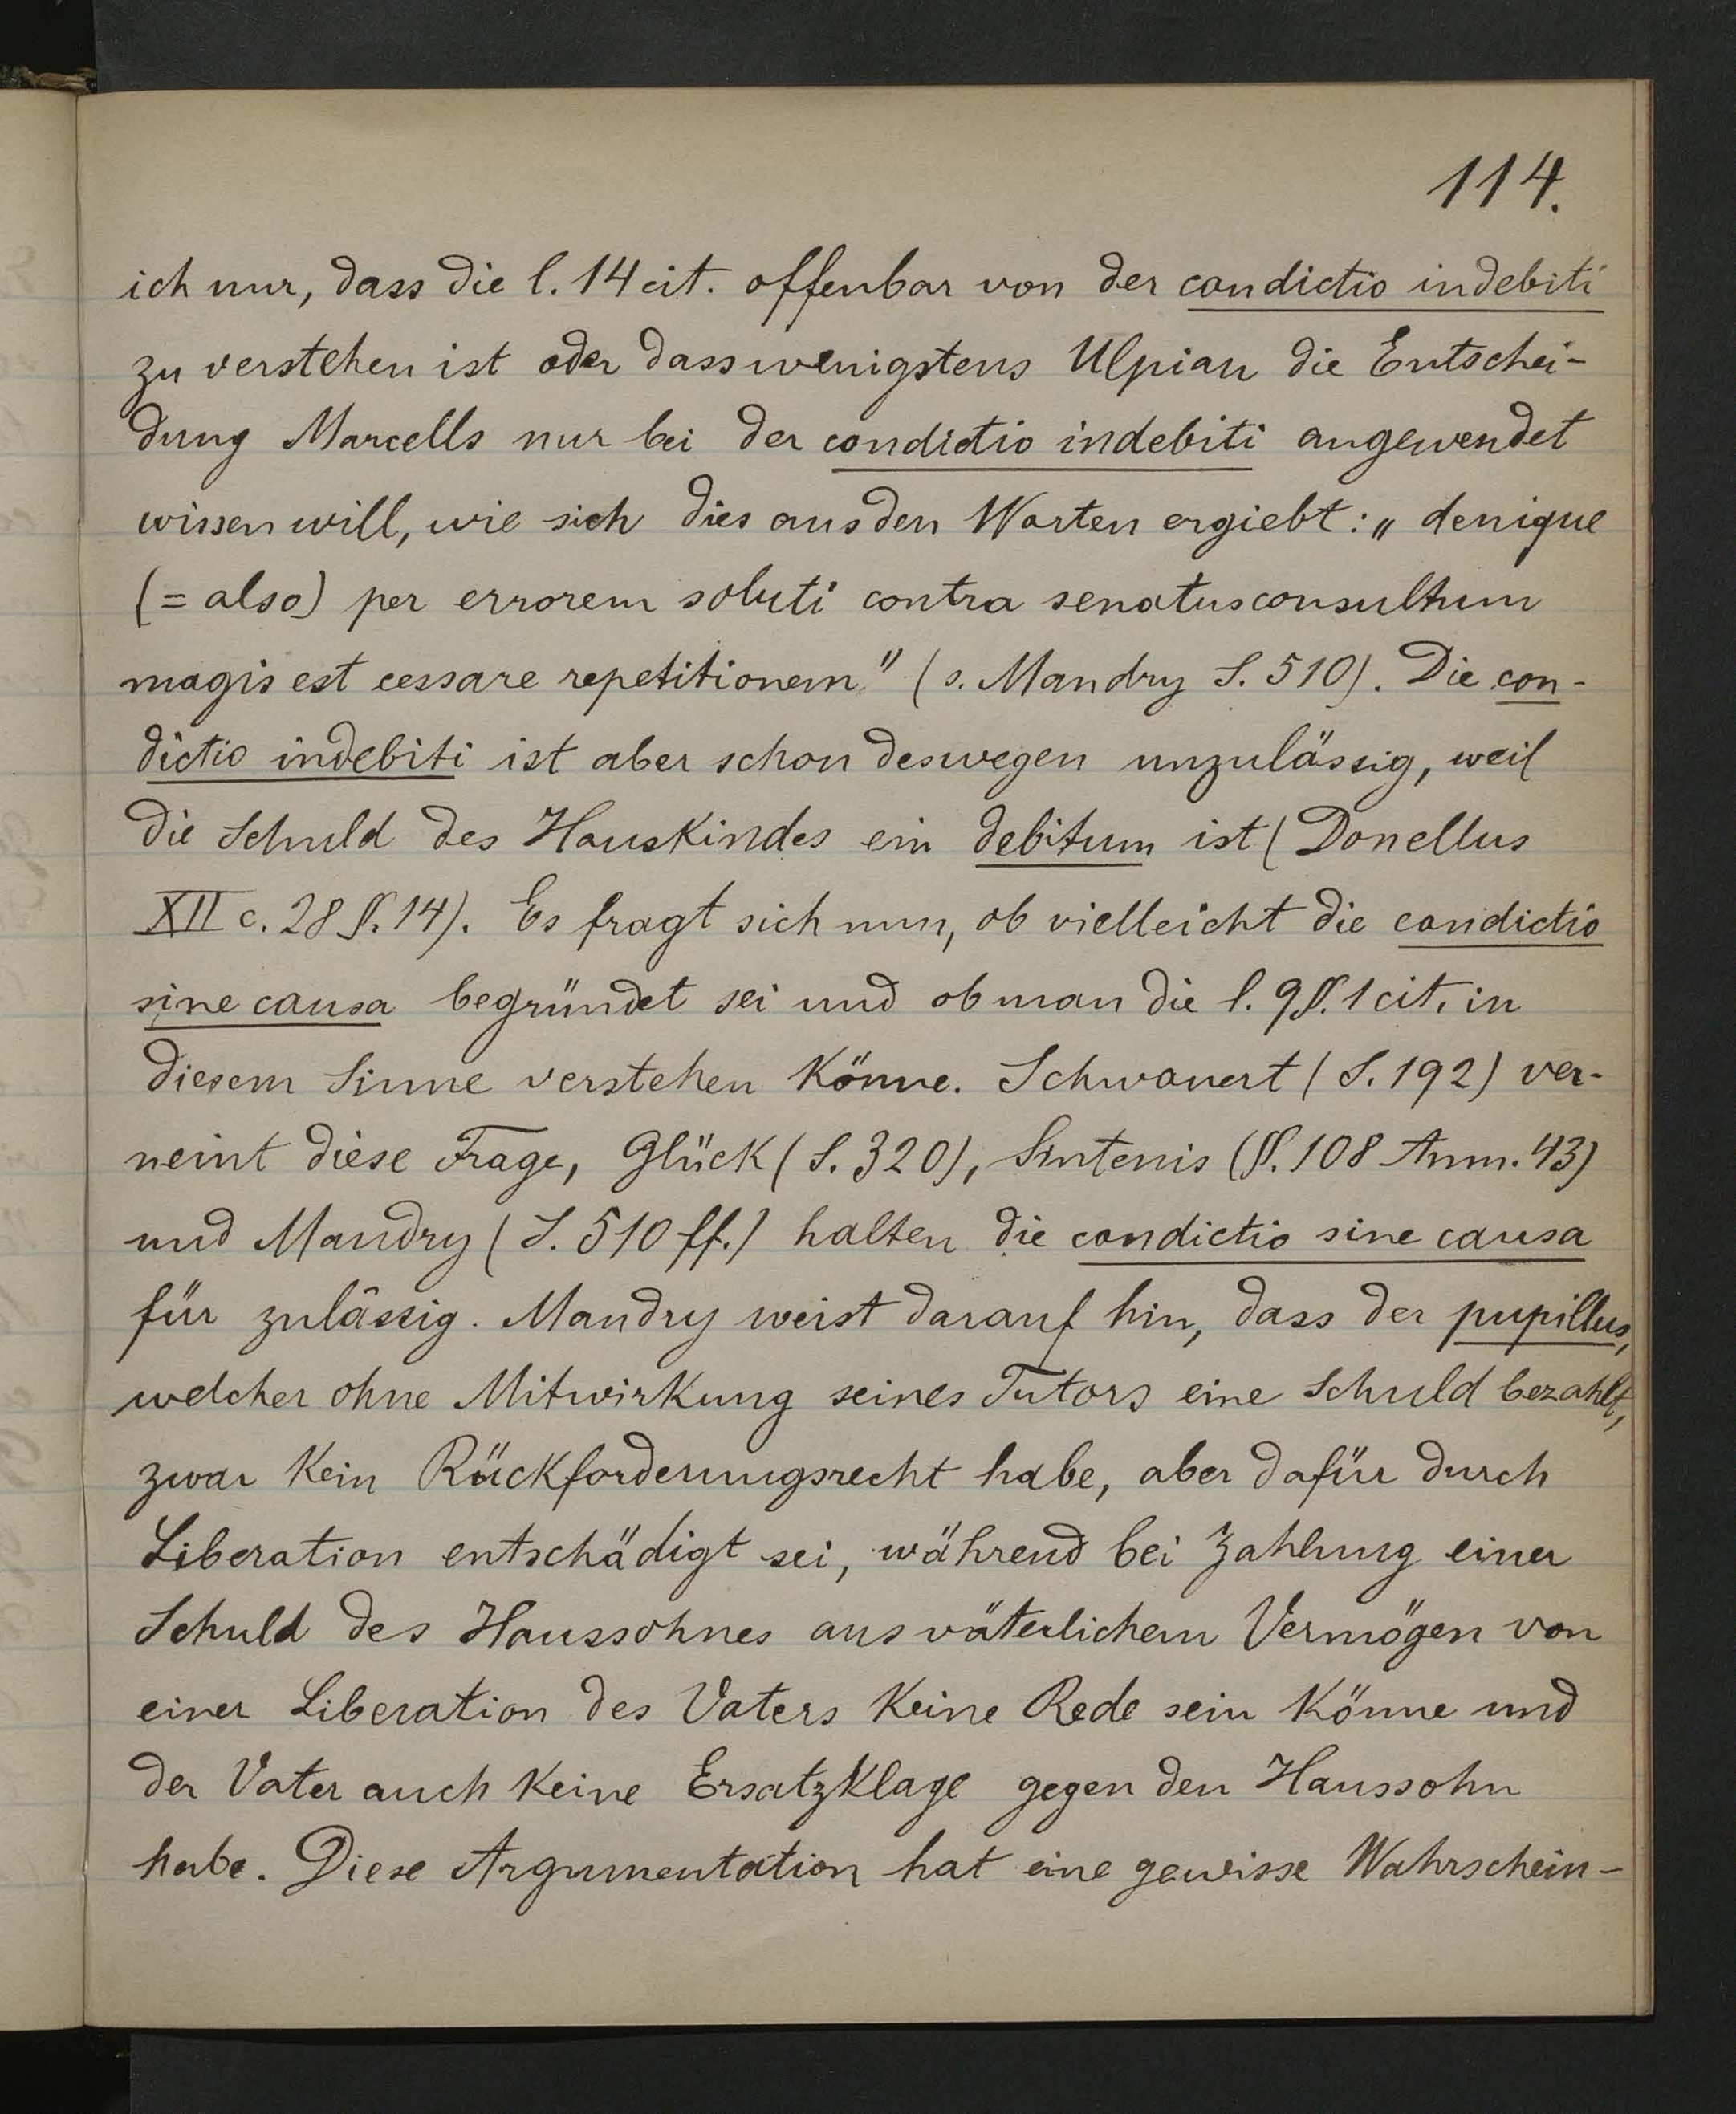 114.
ich nur, dass die l. 14 cit. offenbar von der condictio indebiti
zu verstehen ist oder dass wenigstens Ulpian die Entschei-
dung Marcells nur bei der condictio indebiti angewendet
wissen will, wie sich dies aus den Worten ergiebt: „denique
(= also) per errorem soluti contra senatusconsultum
magis est cessare repetitionem" (s. Mandry S. 510). Die con-
dictio indebiti ist aber schon deswegen unzulässig, weil
die Schuld des Hauskindes ein debitum ist (Donellus
XII c. 28 §. 14). Es fragt sich nun, ob vielleicht die condictio
sine causa begründet sei und ob man die l. 9 §. 1 cit. in
diesem Sinne verstehen könne. Schwanert (S. 192) ver-
neint diese Frage, Glück (S. 320), Sintenis (§. 108 Anm. 43)
und Mandry (S. 510 ff.) halten die condictio sine causa
für zulässig. Mandry weist darauf hin, dass der pupillus,
welcher ohne Mitwirkung seines Tutors eine Schuld bezahlt,
zwar kein Rückforderungsrecht habe, aber dafür durch
Liberation entschädigt sei, während bei Zahlung einer
Schuld des Haussohnes aus väterlichem Vermögen von
einer Liberation des Vaters keine Rede sein könne und
der Vater auch keine Ersatzklage gegen den Haussohn
habe. Diese Argumentation hat eine gewisse Wahrschein-